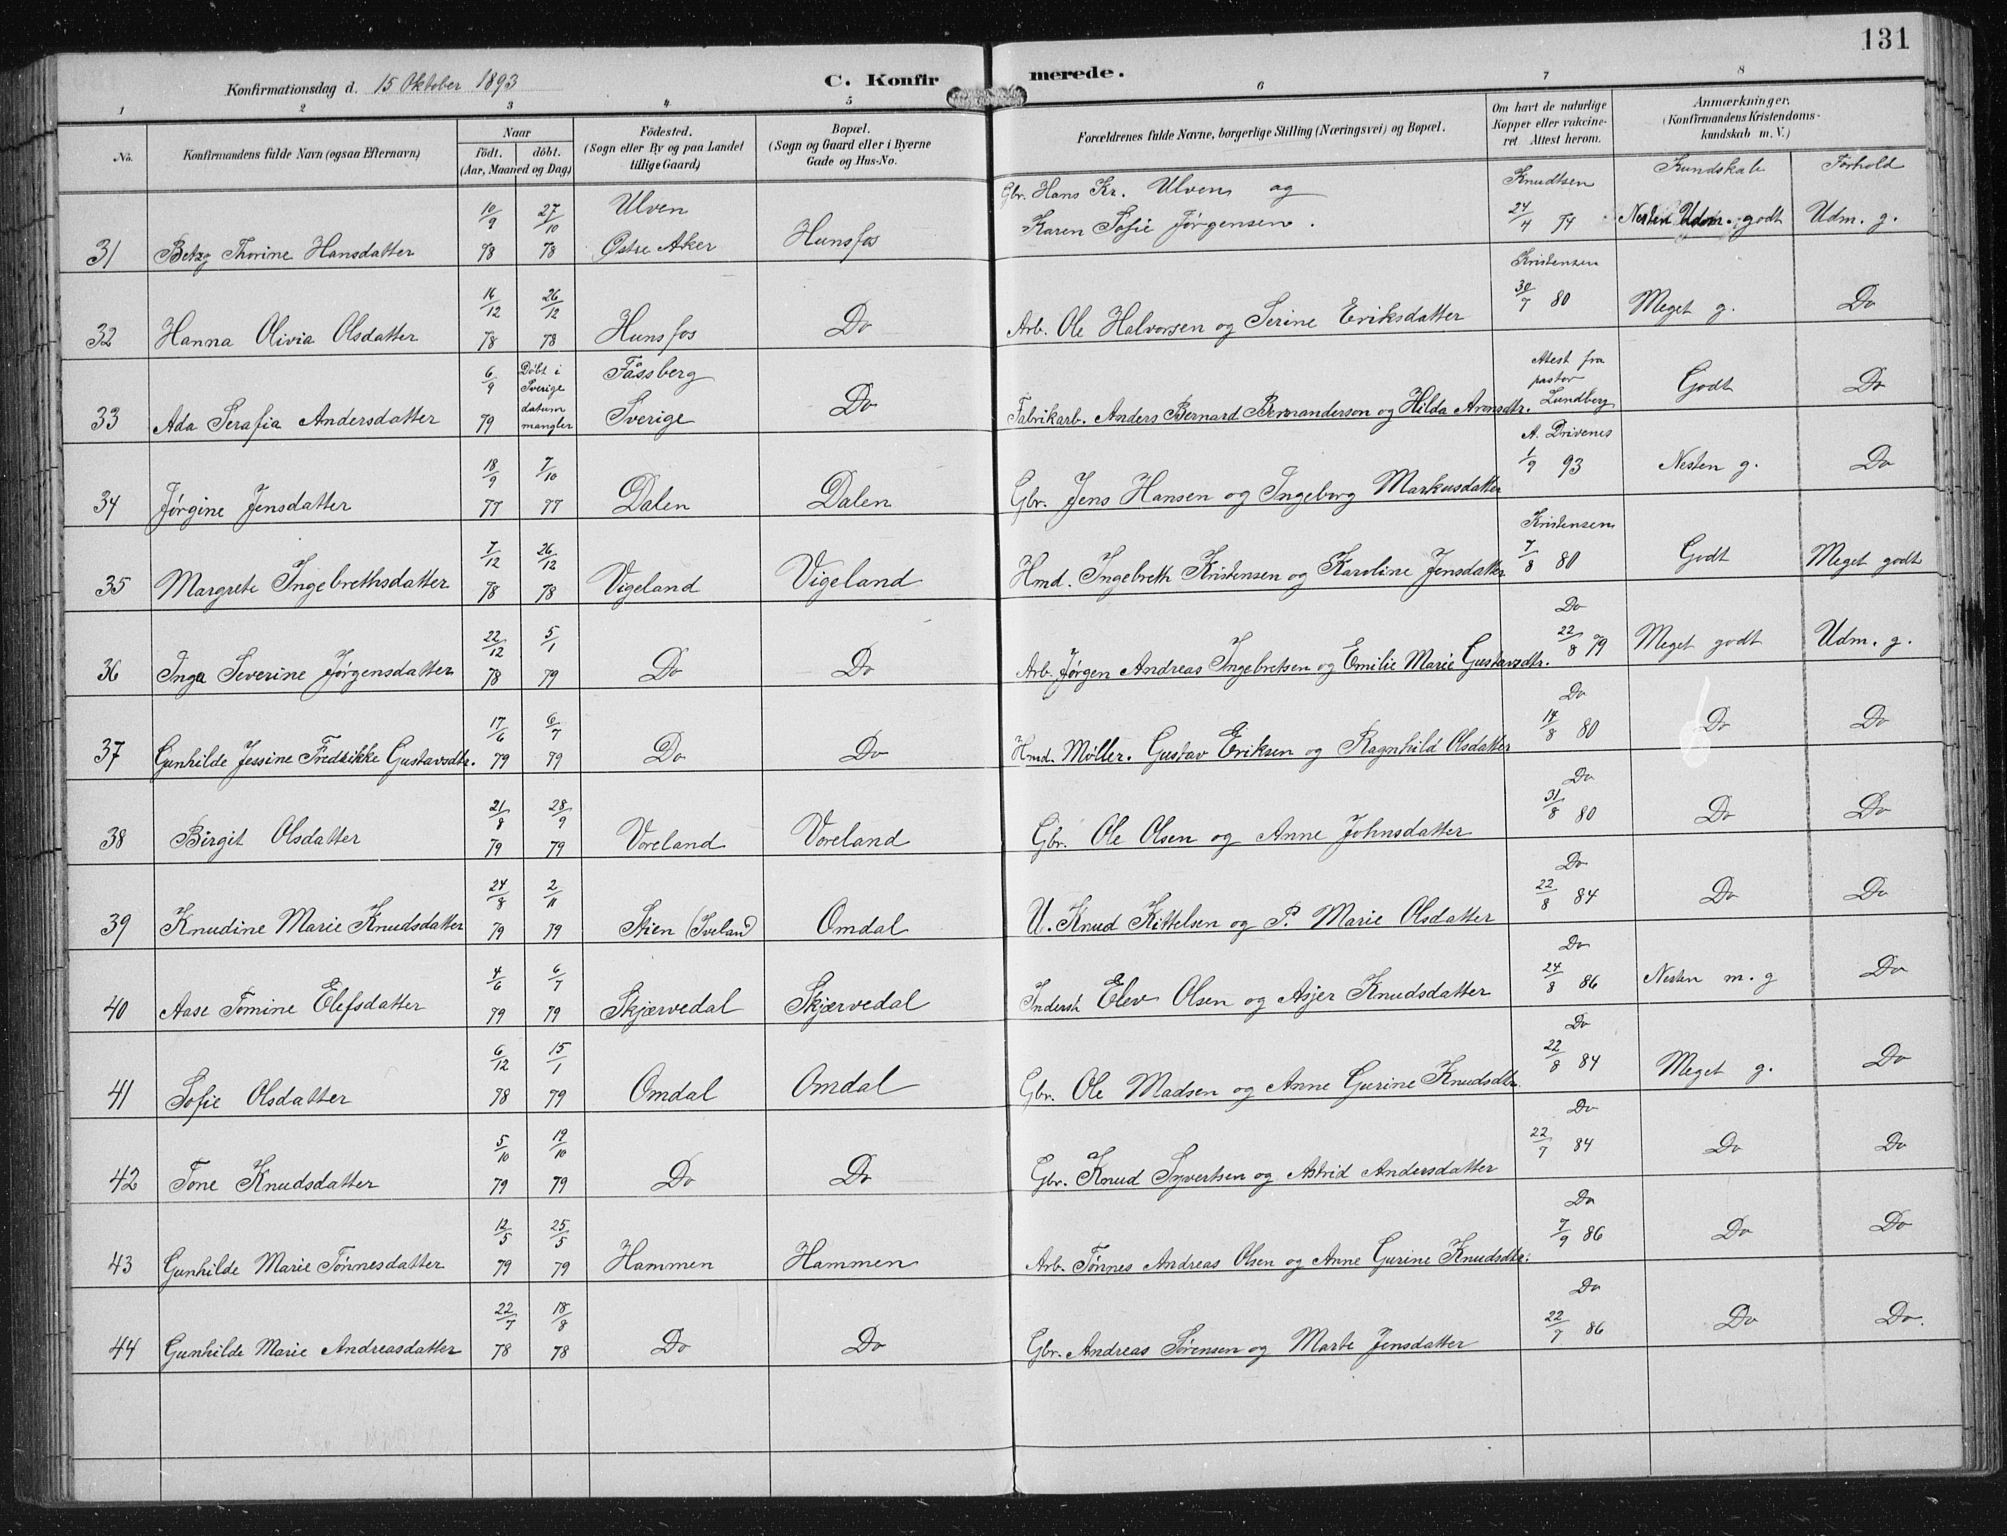 131
Konfirmationsdag d. 15 Oktober 1893
C. Konfir merede.
1 2 3 4 5 6 7 8
No. Konfirmandens fulde Navn (ogsaa Efternavn) Naar födt. döbt. (Aar, Maaned og Dag) Födested. (Sogn eller By og paa Landet tillige Gaard) Bopæl. (Sogn og Gaard eller i Byerne Gade og Hus-No. Forældrenes fulde Navne, borgerlige Stilling (Næringsvei) og Bopæl. Om havt de naturlige Kopper eller vakcineret Attest herom. Anmærkninger. (Konfirmandens Kristendomskundskab m. V.)
Kundskab Forhold
31 Betzy Thorine Hansdatter 10/9 78 27/10 78 Ulven Østre Aker Hunsfos Gbr. Hans Kr. Ulven og Karen Sofie Jørgensen. Knudtsen 24/4 74 Nesten Udm. godt Udm. g.
32 Hanna Olivia Olsdatter 16/12 78 26/12 78 Hunsfos Do Arb. Ole Halvorsen og Serine Eriksdatter Kristensen 30/7 80 Meget g. Do
33 Ada Serafia Andersdatter 6/9 79 Döbt i Sverige datum mangler Fässberg Sverige Do Fabrikarb. Anders Bernard Bernanderson og Hilda Aronsdtr. Attest fra pastor Lundberg Godt Do
34 Jørgine Jensdatter 18/9 77 7/10 77 Dalen Dalen Gbr. Jens Hansen og Ingeborg Markusdatter A. Drivenes 1/9 93 Nesten g. Do
35 Margrete Ingebrethsdatter 7/12 78 26/12 78 Vigeland Vigeland Hmd. Ingebreth Kristensen og Karoline Jensdatter Kristensen 7/8 80 Godt Meget godt
36 Inga Severine Jørgensdatter 22/12 78 5/1 79 Do Do Arb. Jørgen Andreas Ingebretsen og Emilie Marie Gustavsdtr. Do 22/8 79 Meget godt Udm. g.
37 Gunhilde Jessine Fredrikke Gustavsdtr. 17/6 79 6/7 79 Do Do Hmd. Møller. Gustav Eriksen og Ragnhild Olsdatter Do 14/8 80 Do Do
38 Birgit Olsdatter 21/8 79 28/9 79 Voreland Voreland Gbr. Ole Olsen og Anne Johnsdatter Do 31/8 80 Do Do
39 Knudine Marie Knudsdatter 24/8 79 2/11 79 Stien (Iveland) Omdal U. Knud Kittelsen og P. Marie Olsdatter Do 22/8 84 Do Do
40 Aase Tomine Elefsdatter 4/6 79 6/7 79 Skjærvedal Skjærvedal Inderst Elev Olsen og Asjer Knudsdatter Do 24/8 86 Nesten m. g Do
41 Sofie Olsdatter 6/12 78 15/1 79 Omdal Omdal Gbr. Ole Madsen og Anne Gurine Knudsdtr. Do 22/8 84 Meget g. Do
42 Tone Knudsdatter 5/10 79 19/10 79 Do Do Gbr. Knud Syvertsen og Astrid Andersdatter Do 22/7 84 Do Do
43 Gunhilde Marie Tønnesdatter 12/5 79 25/5 79 Hammen Hammen Arb. Tønnes Andreas Olsen og Anne Gurine Knudsdtr. Do 7/9 86 Do Do
44 Gunhilde Marie Andreasdatter 22/7 78 18/8 78 Do Do Gbr. Andreas Sørensen og Marte Jensdatter Do 22/7 86 Do Do.